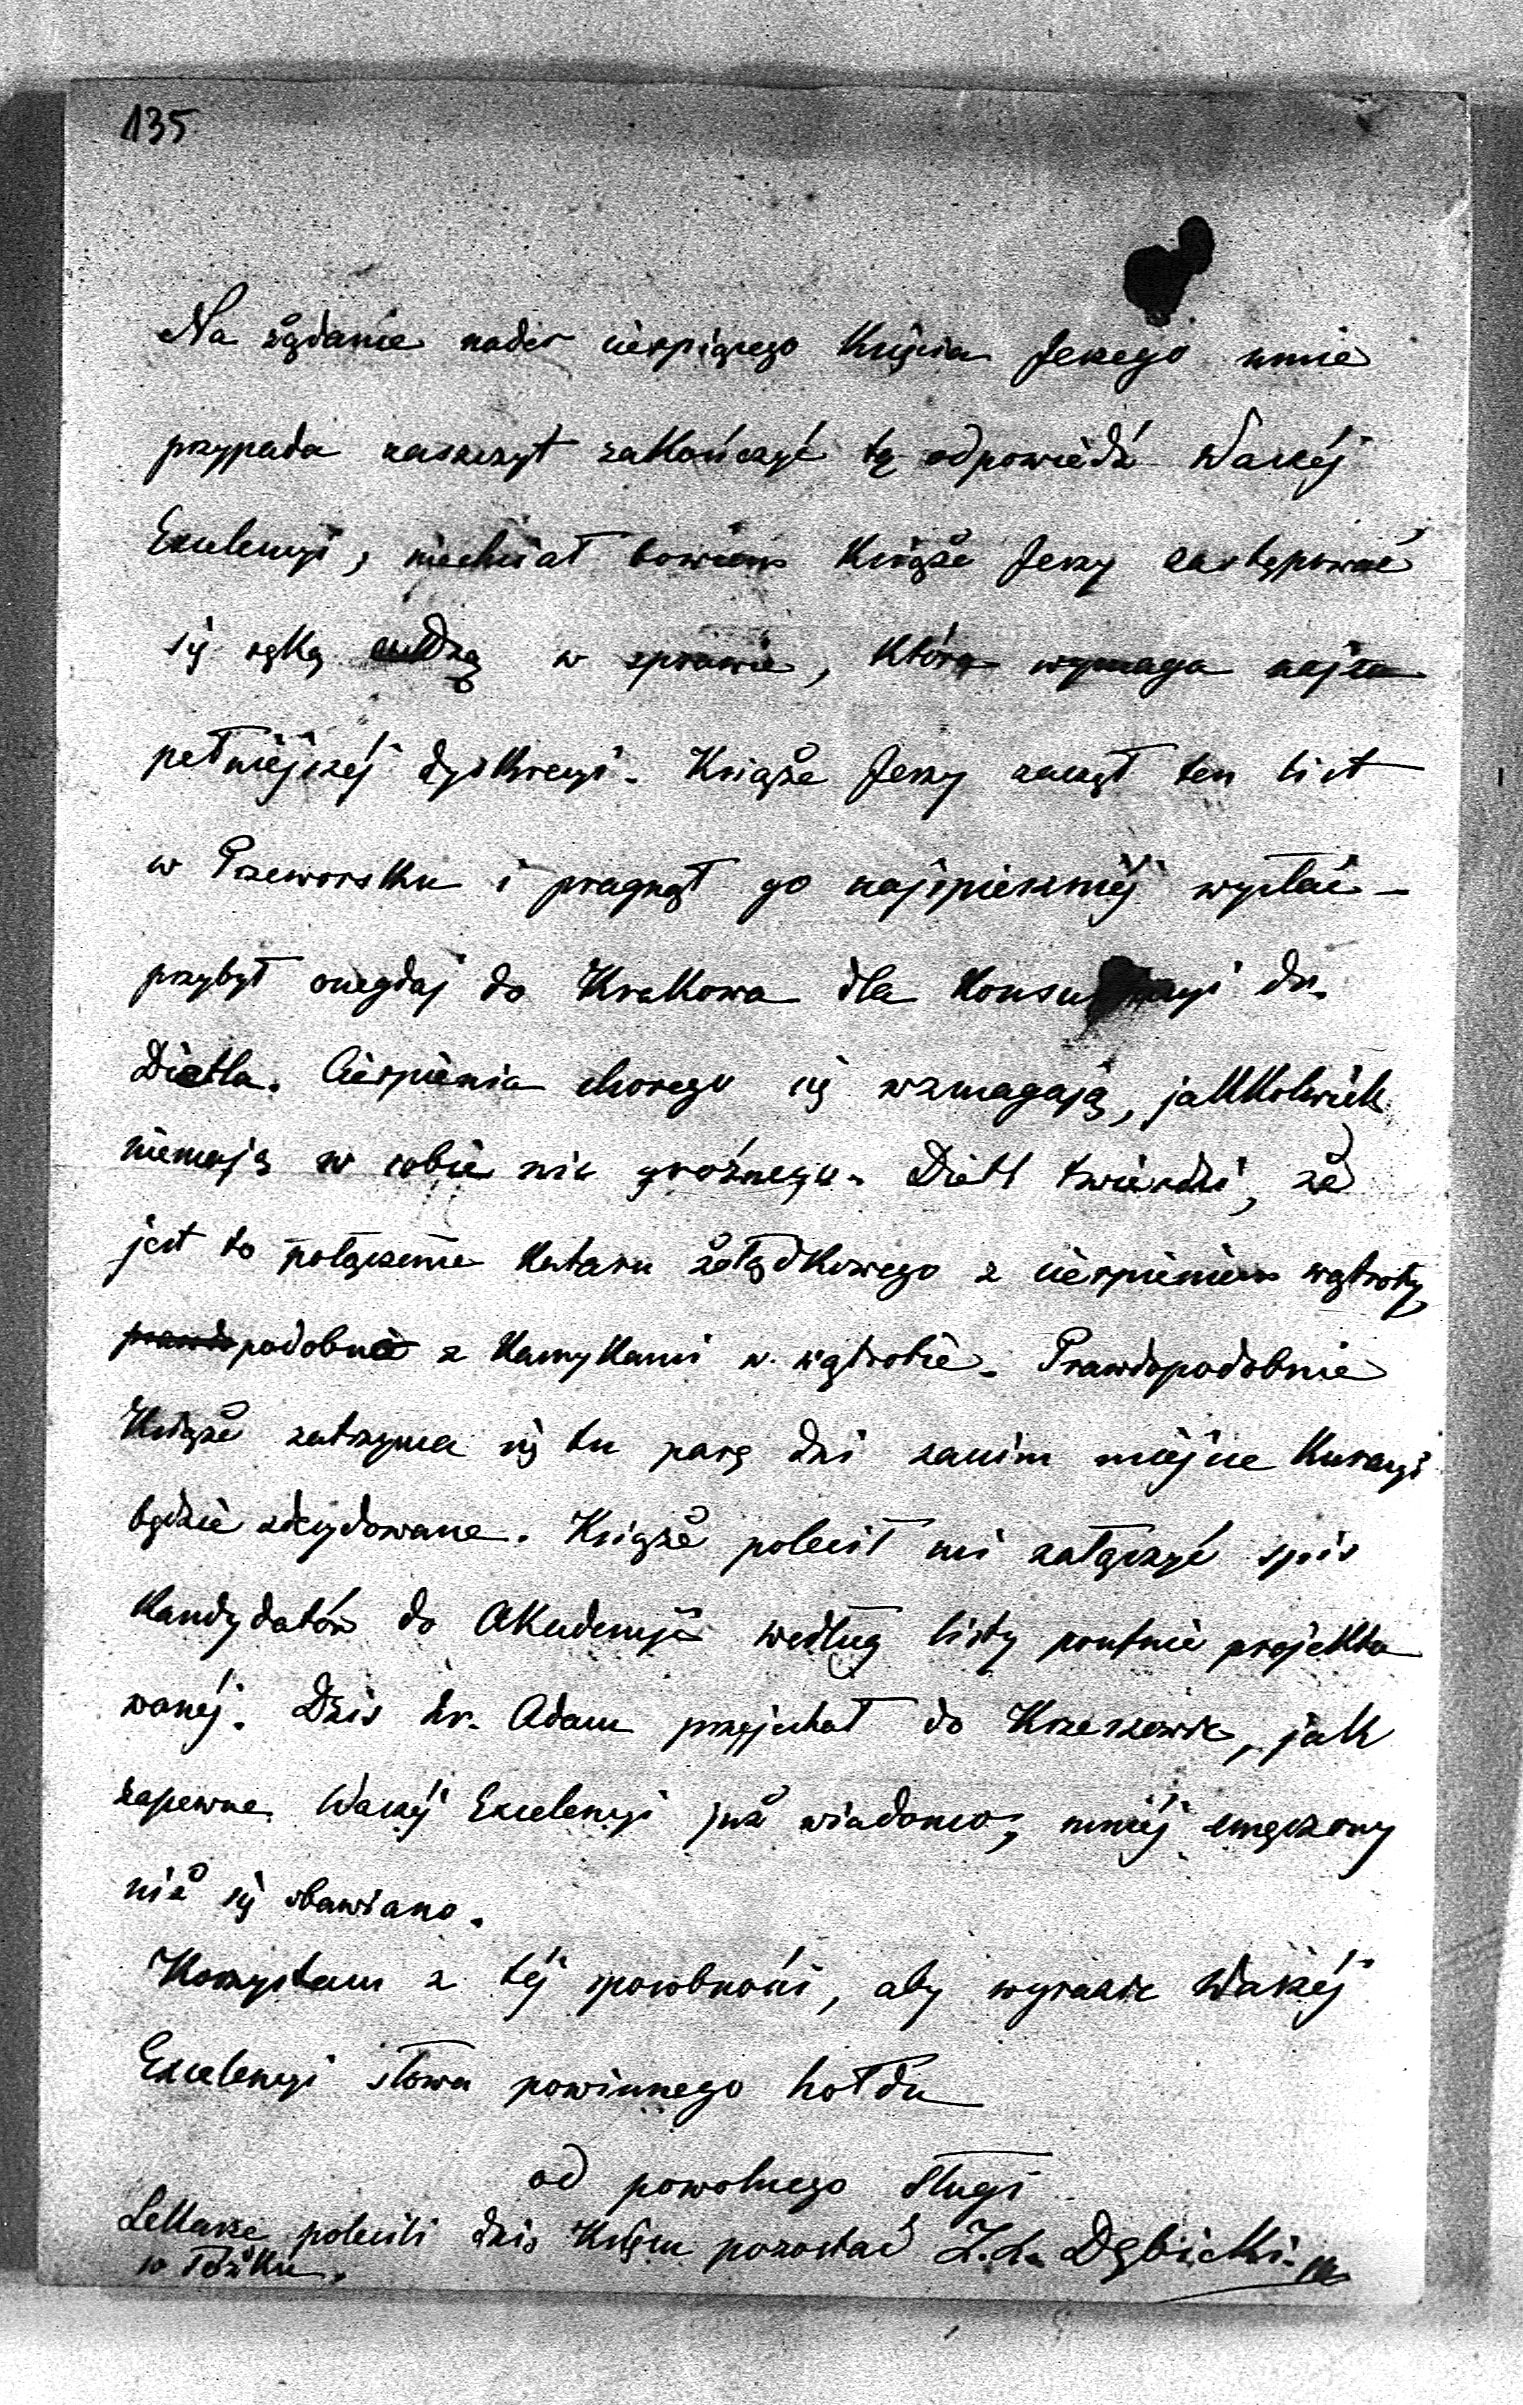 135
Na żądanie nader cierpiącego Księcia Jerzego mnie
przypada zaszczyt zakończyć tę odpowiedź Waszéj
Excelencyi, niechciał bowiem Książe Jerzy zastępować
się ręką cudzą w sprawie, która wymaga najzu
pełniejszéj dyskrecyi. Książe Jerzy zaczął ten list
w Przeworsku i pragnął go najspieszniéj wysłać –
przybył onegdaj do Krakowa dla konsultacyi dr.
Dietla. Cierpienia chorego się wzmagają, jakkolwiek
niemają w sobie nic groźnego. Dietl twierdzi, że
jest to połączenie kataru żołądkowego z cierpieniem wątroby,
prawdopodobnie z kamykami w wątrobie. Prawdopodobnie
Książe zatrzyma się tu parę dni zanim miejsce kuracyi
będzie zdecydowane. Książe polecił mi załączyć spis
kandydatów do Akademji według listy poufnie projekto
wanéj. Dziś hr. Adam przejechał do Krzeszowic, jak
zapewne Waszéj Excelencyi już wiadomo, mniéj zmęczony
niż się obawiano.
Korzystam z téj sposobności, aby wyrazić Waszéj
Excelencyi słowa powinnego hołdu
od powolnego sługi
Lekarze polecili dziś Księciu pozostać Z. L. Dębicki
w łóżku.